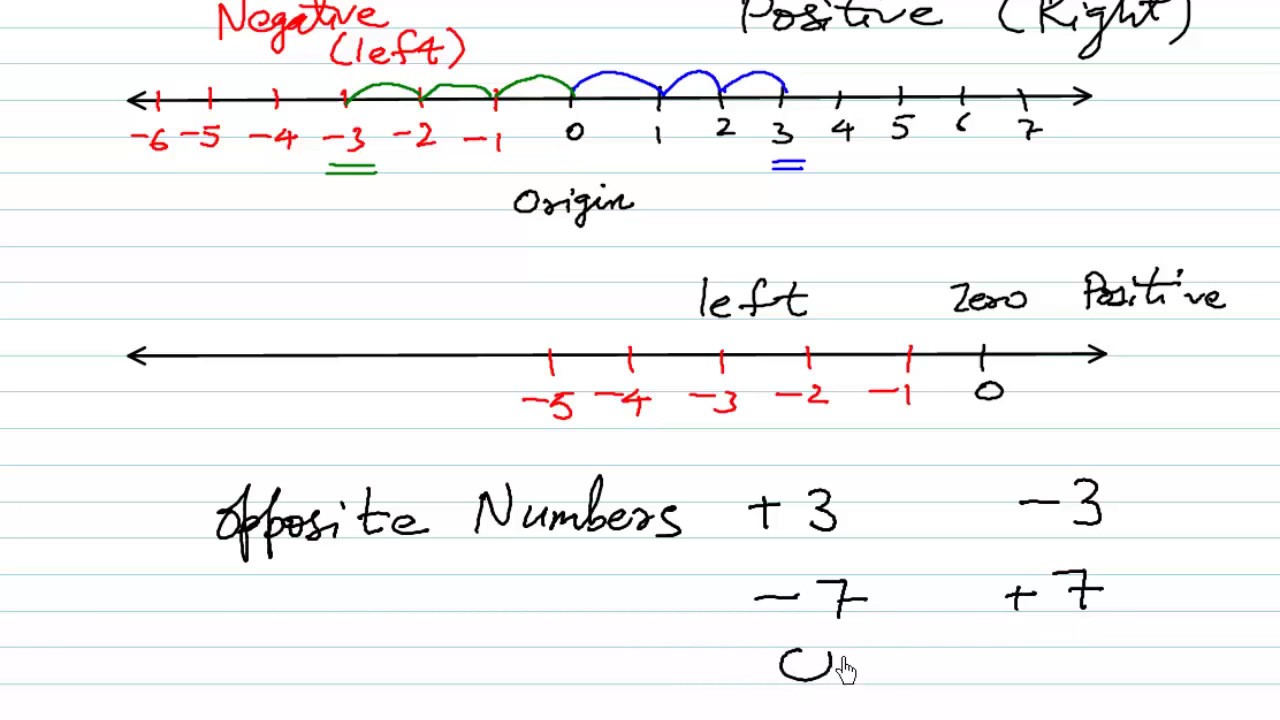 Negative Positive (Right)
(left)
-6 -5 -4 -3 -2 -1 0 1 2 3 4 5 6 7
Origin
left Zero Positive
-5 -4 -3 -2 -1 0
Opposite Numbers +3 -3
-7 +7